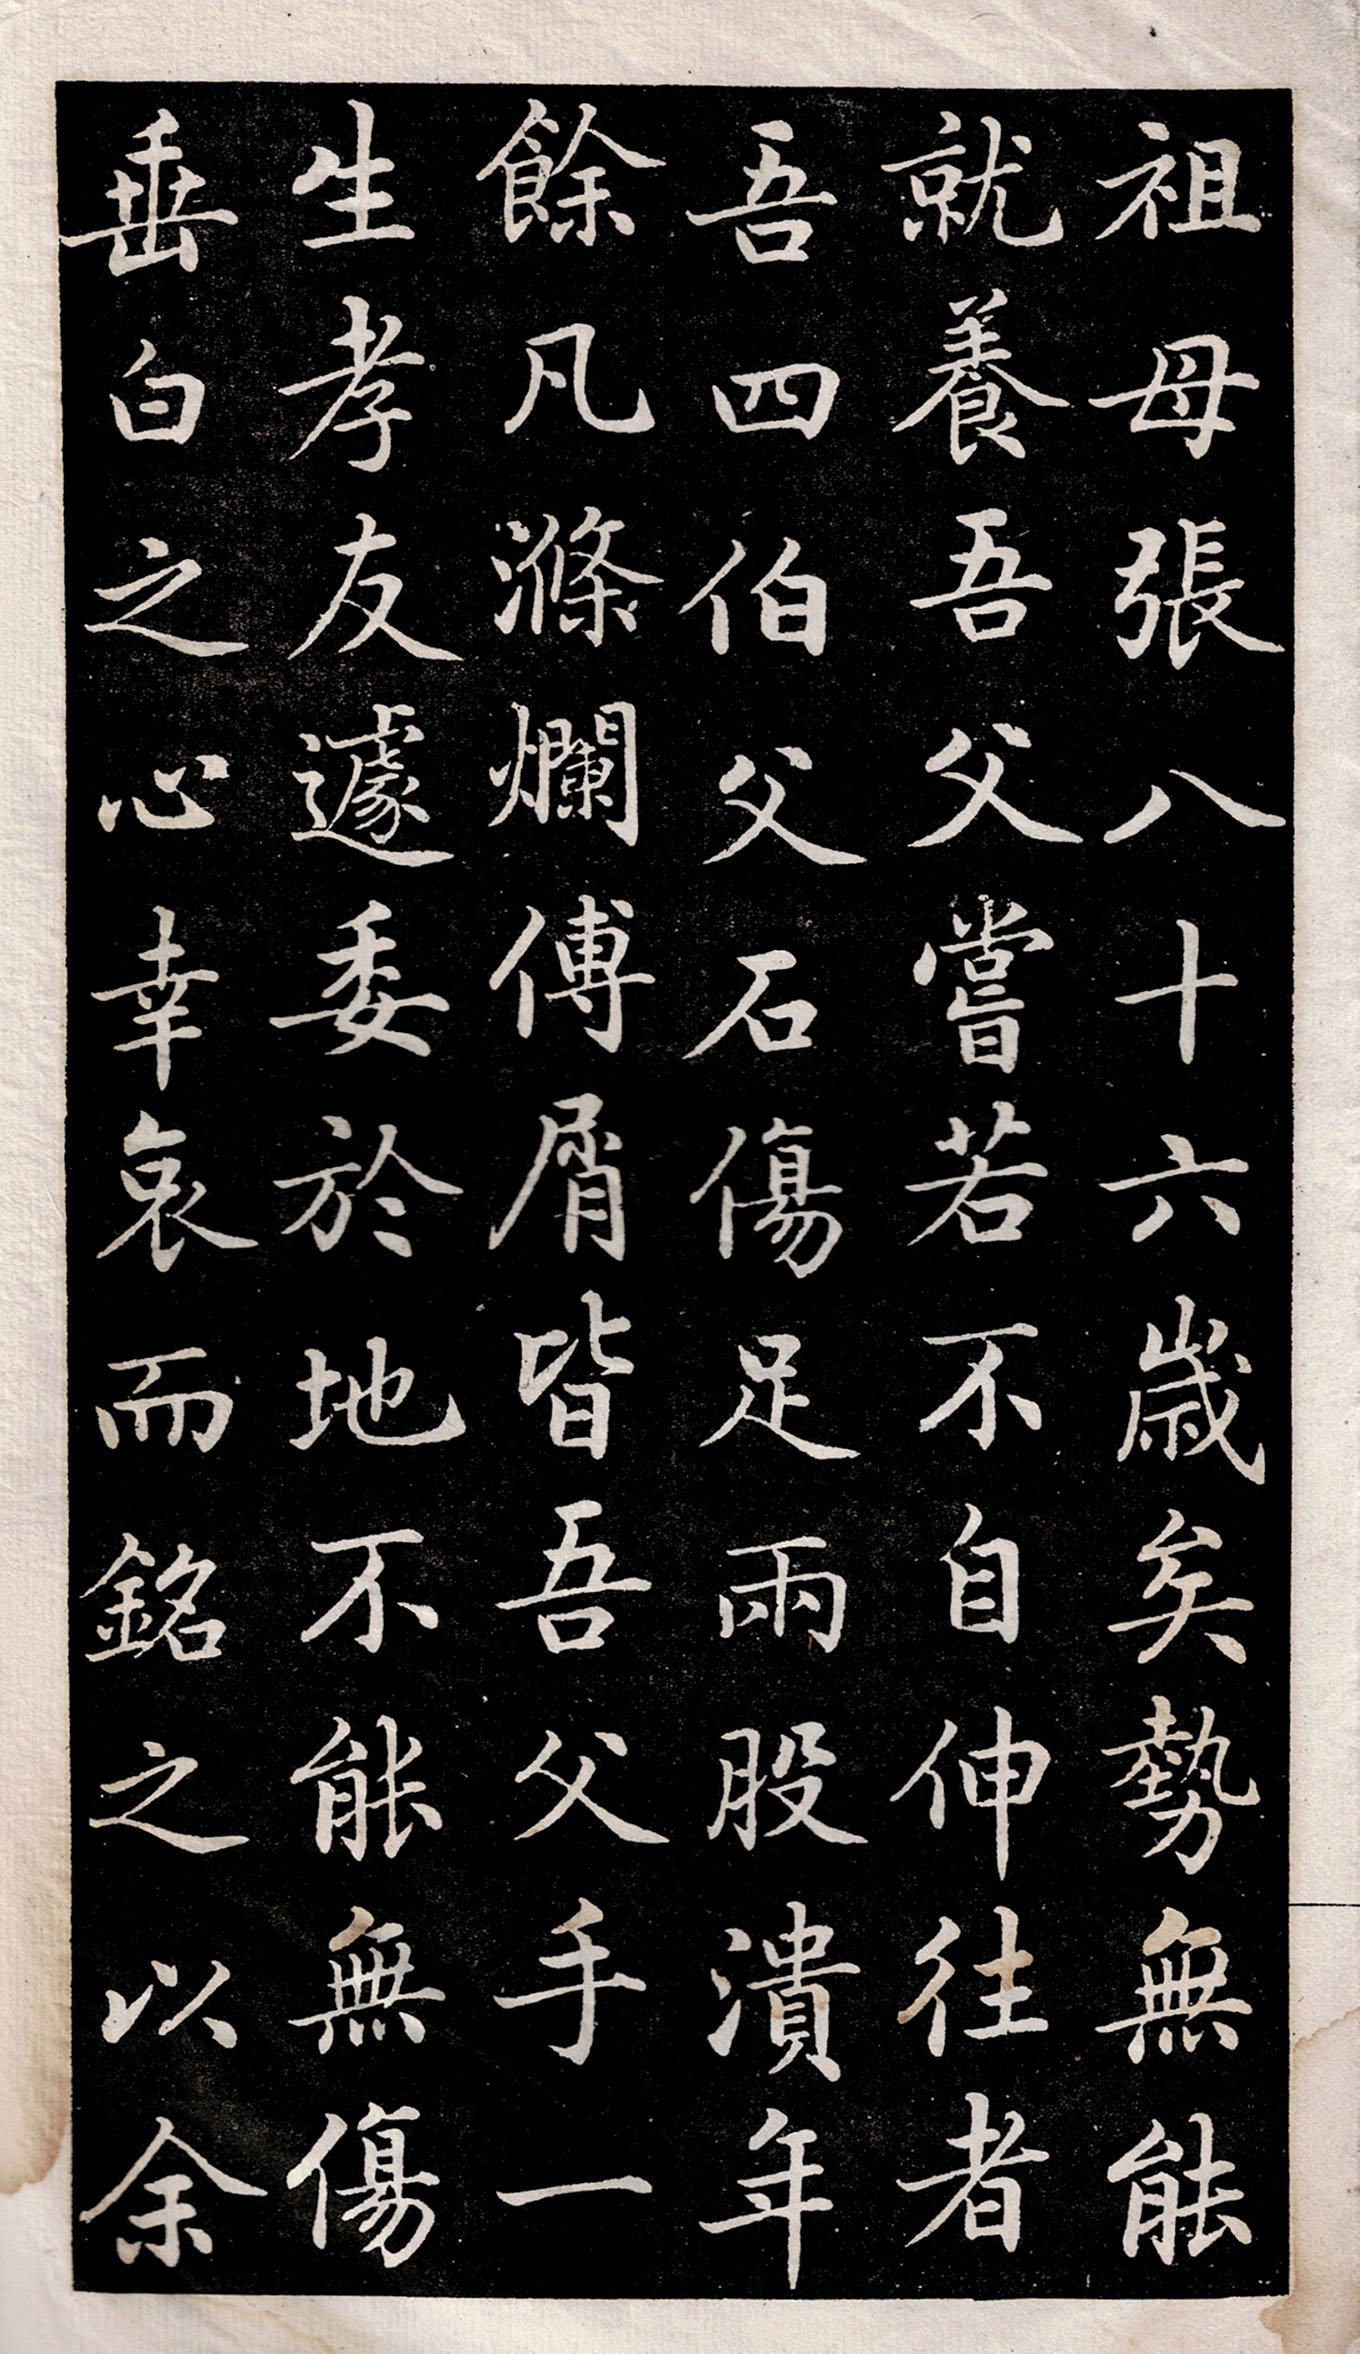 祖母張八十六歲矣勢無能
就養吾父嘗若不自伸往者
吾四伯父石傷足兩股潰年
餘凡滌爛傅屑皆吾父手一
生孝友遽委於地不能無傷
垂白之心幸哀而銘之以余